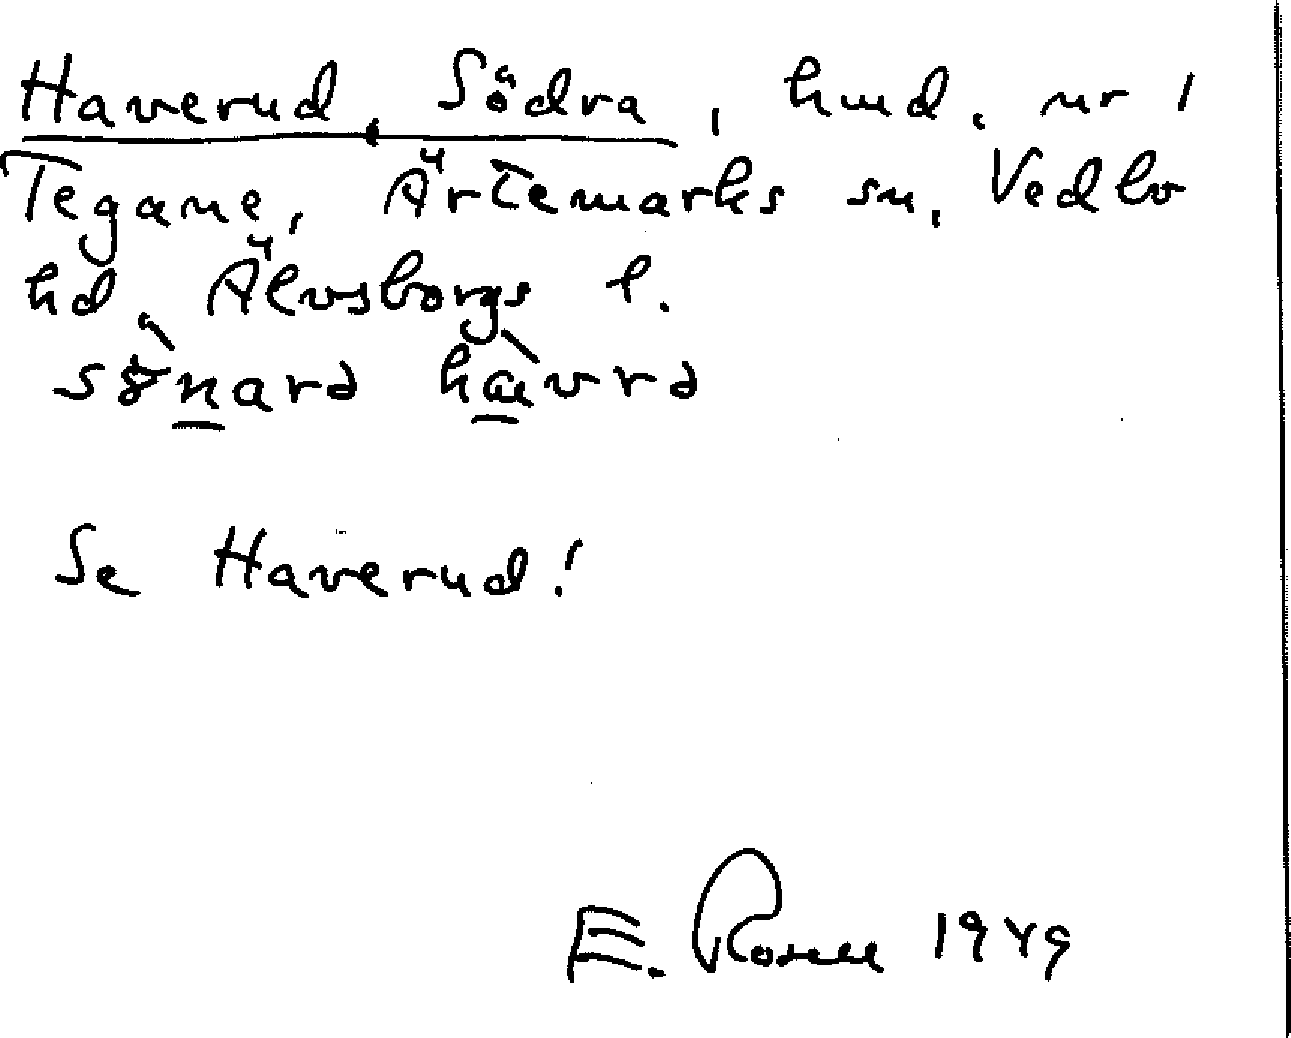 Haverud, Södra, hmd. nr 1
Tegane, Ärtemarks sn, Vedbo
hd, Älvsborgs l.
Se Haverud!
E. Rosell 1949